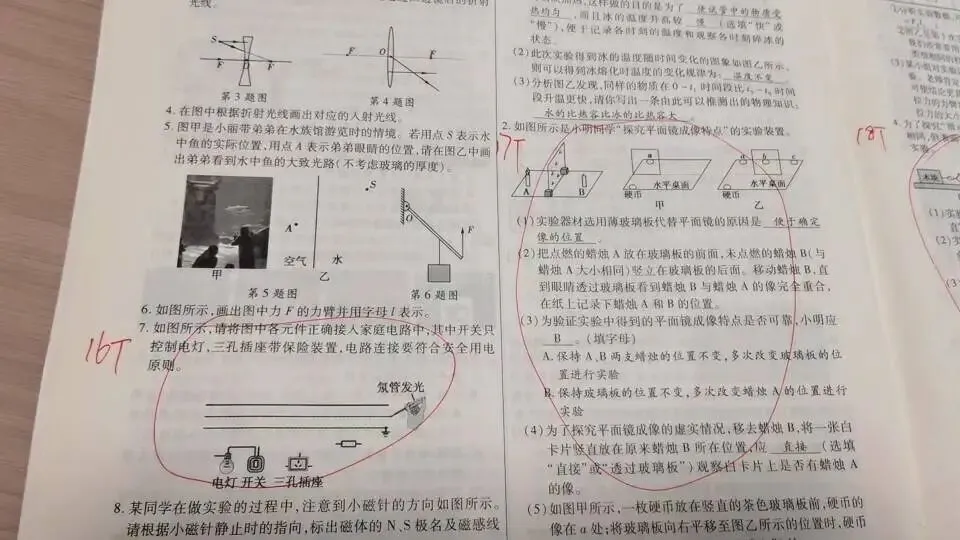 光线。
S
F
O
F
第3题图
F
O
F
第4题图
4. 在图中根据折射光线画出对应的入射光线。
5. 图甲是小丽带弟弟在水族馆游览时的情境。若用点S表示水
中鱼的实际位置,用点A表示弟弟眼睛的位置,请在图乙中画
出弟弟看到水中鱼的大致光路(不考虑玻璃的厚度)。
S
A
空气
水
甲
乙
第5题图
O
F
第6题图
6. 如图所示,画出图中力F的力臂并用字母l表示。
16T
7. 如图所示,请将图中各元件正确接入家庭电路中,其中开关只
控制电灯,三孔插座带保险装置,电路连接要符合安全用电
原则。
氖管发光
电灯 开关 三孔插座
8. 某同学在做实验的过程中,注意到小磁针的方向如图所示。
请根据小磁针静止时的指向,标出磁体的N、S极名及磁感线
这样做的目的是为了 使试管中的物质受
热均匀 ,而且冰的温度升高较 慢 (选填“快”或
“慢”),便于记录各时刻的温度和观察各时刻碎冰的
状态。
(2)此次实验得到冰的温度随时间变化的图象如图乙所示,
则可以得到冰熔化时温度的变化规律为: 温度不变
(3)分析图乙发现,同样的物质在0~t₁时间段比t₂~t₃时间
段升温更快,请你写出一条由此可以推测出的物理知识:
水的比热容比冰的比热容大
2. 如图所示是小明同学“探究平面镜成像特点”的实验装置。
17T
A
B
a
硬币
水平桌面
甲
a
b
c
硬币
水平桌面
乙
(1)实验器材选用薄玻璃板代替平面镜的原因是 便于确定
像的位置 。
(2)把点燃的蜡烛A放在玻璃板的前面,未点燃的蜡烛B(与
蜡烛A大小相同)竖立在玻璃板的后面。移动蜡烛B,直
到眼睛透过玻璃板看到蜡烛B与蜡烛A的像完全重合,
在纸上记录下蜡烛A和B的位置。
(3)为验证实验中得到的平面镜成像特点是否可靠,小明应
B 。(填字母)
A. 保持A、B两支蜡烛的位置不变,多次改变玻璃板的位
置进行实验
B. 保持玻璃板的位置不变,多次改变蜡烛A的位置进行
实验
(4)为了探究平面镜成像的虚实情况,移去蜡烛B,将一张白
卡片竖直放在原来蜡烛B所在位置,应 直接 (选填
“直接”或“透过玻璃板”)观察白卡片上是否有蜡烛A
的像。
(5)如图甲所示,一枚硬币放在竖直的茶色玻璃板前,硬币的
像在a处;将玻璃板向右平移至图乙所示的位置时,硬币
18T
木块